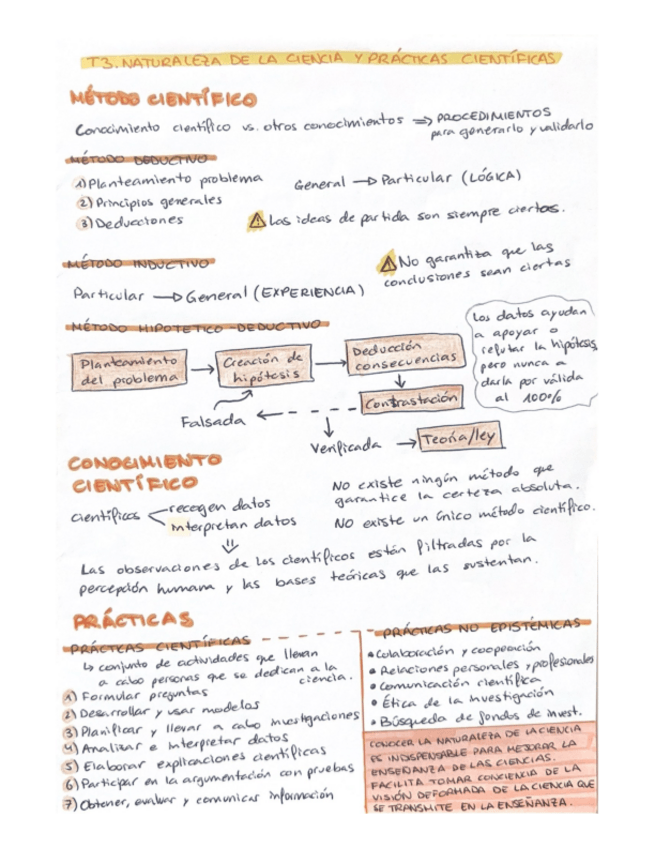 T3. NATURALEZA DE LA CIENCIA Y PRÁCTICAS CIENTÍFICAS
MÉTODO CIENTÍFICO
Conocimiento científico vs. otros conocimientos ⇒ PROCEDIMIENTOS
para generarlo y validarlo
MÉTODO DEDUCTIVO
1) Planteamiento problema
2) Principios generales
3) Deducciones
General → Particular (LÓGICA)
⚠ Las ideas de partida son siempre ciertas.
MÉTODO INDUCTIVO
Particular → General (EXPERIENCIA)
⚠ No garantiza que las
conclusiones sean ciertas
MÉTODO HIPOTETICO-DEDUCTIVO
Planteamiento
del problema
Creación de
hipótesis
Deducción
consecuencias
Contrastación
Falsada
Verificada
Teoría/ley
Los datos ayudan
a apoyar o
refutar la hipótesis,
pero nunca a
darla por válida
al 100%
CONOCIMIENTO
CIENTÍFICO
científicos
recogen datos
interpretan datos
No existe ningún método que
garantice la certeza absoluta.
No existe un único método científico.
Las observaciones de los científicos están filtradas por la
percepción humana y las bases teóricas que las sustentan.
PRÁCTICAS
PRÁCTCAS CIENTÍFICAS
↳ conjunto de actividades que llevan
a cabo personas que se dedican a la
ciencia.
1) Formular preguntas
2) Desarrollar y usar modelos
3) Planificar y llevar a cabo investigaciones
4) Analizar e interpretar datos
5) Elaborar explicaciones científicas
6) Participar en la argumentación con pruebas
7) Obtener, evaluar y comunicar información
PRÁCTICAS NO EPISTÉMICAS
• Colaboración y cooperación
• Relaciones personales y profesionales
• Comunicación científica
• Ética de la investigación
• Búsqueda de fondos de invest.
CONOCER LA NATURALEZA DE LA CIENCIA
ES INDISPENSABLE PARA MEJORAR LA
ENSEÑANZA DE LAS CIENCIAS.
FACILITA TOMAR CONCIENCIA DE LA
VISIÓN DEFORMADA DE LA CIENCIA QUE
SE TRANSMITE EN LA ENSEÑANZA.